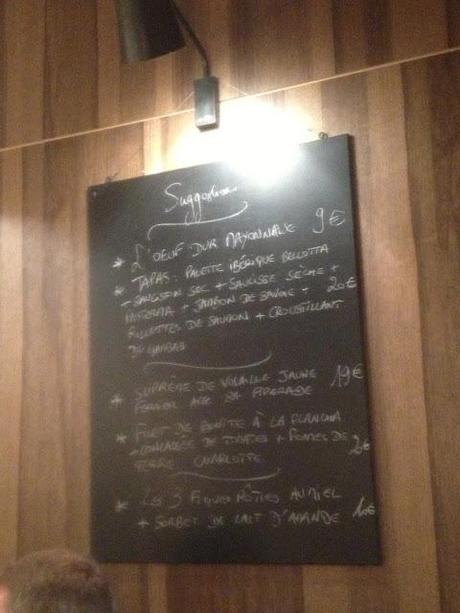 Suggestion
* L'OEUF DUR MAYONNAISE 9€
* TAPAS: PALETTE IBÉRIQUE BELLOTA
+ SAUCISSON SEC + SAUCISSE SÈCHE +
+ JAMBON DE SAVOIE + 20€
RILLETTES DE SAUMON + CROUSTILLANT
DE GAMBAS
* SUPRÊME DE VOLAILLE JAUNE 19€
FERMIER PIPERADE
* FILET DE À LA PLANCHA
+ CONCASSÉE DE TOMATES + POMMES DE
TERRE CHARLOTTE
* LES 3 FIGUES RÔTIES AU MIEL
+ SORBET LAIT D'AMANDE